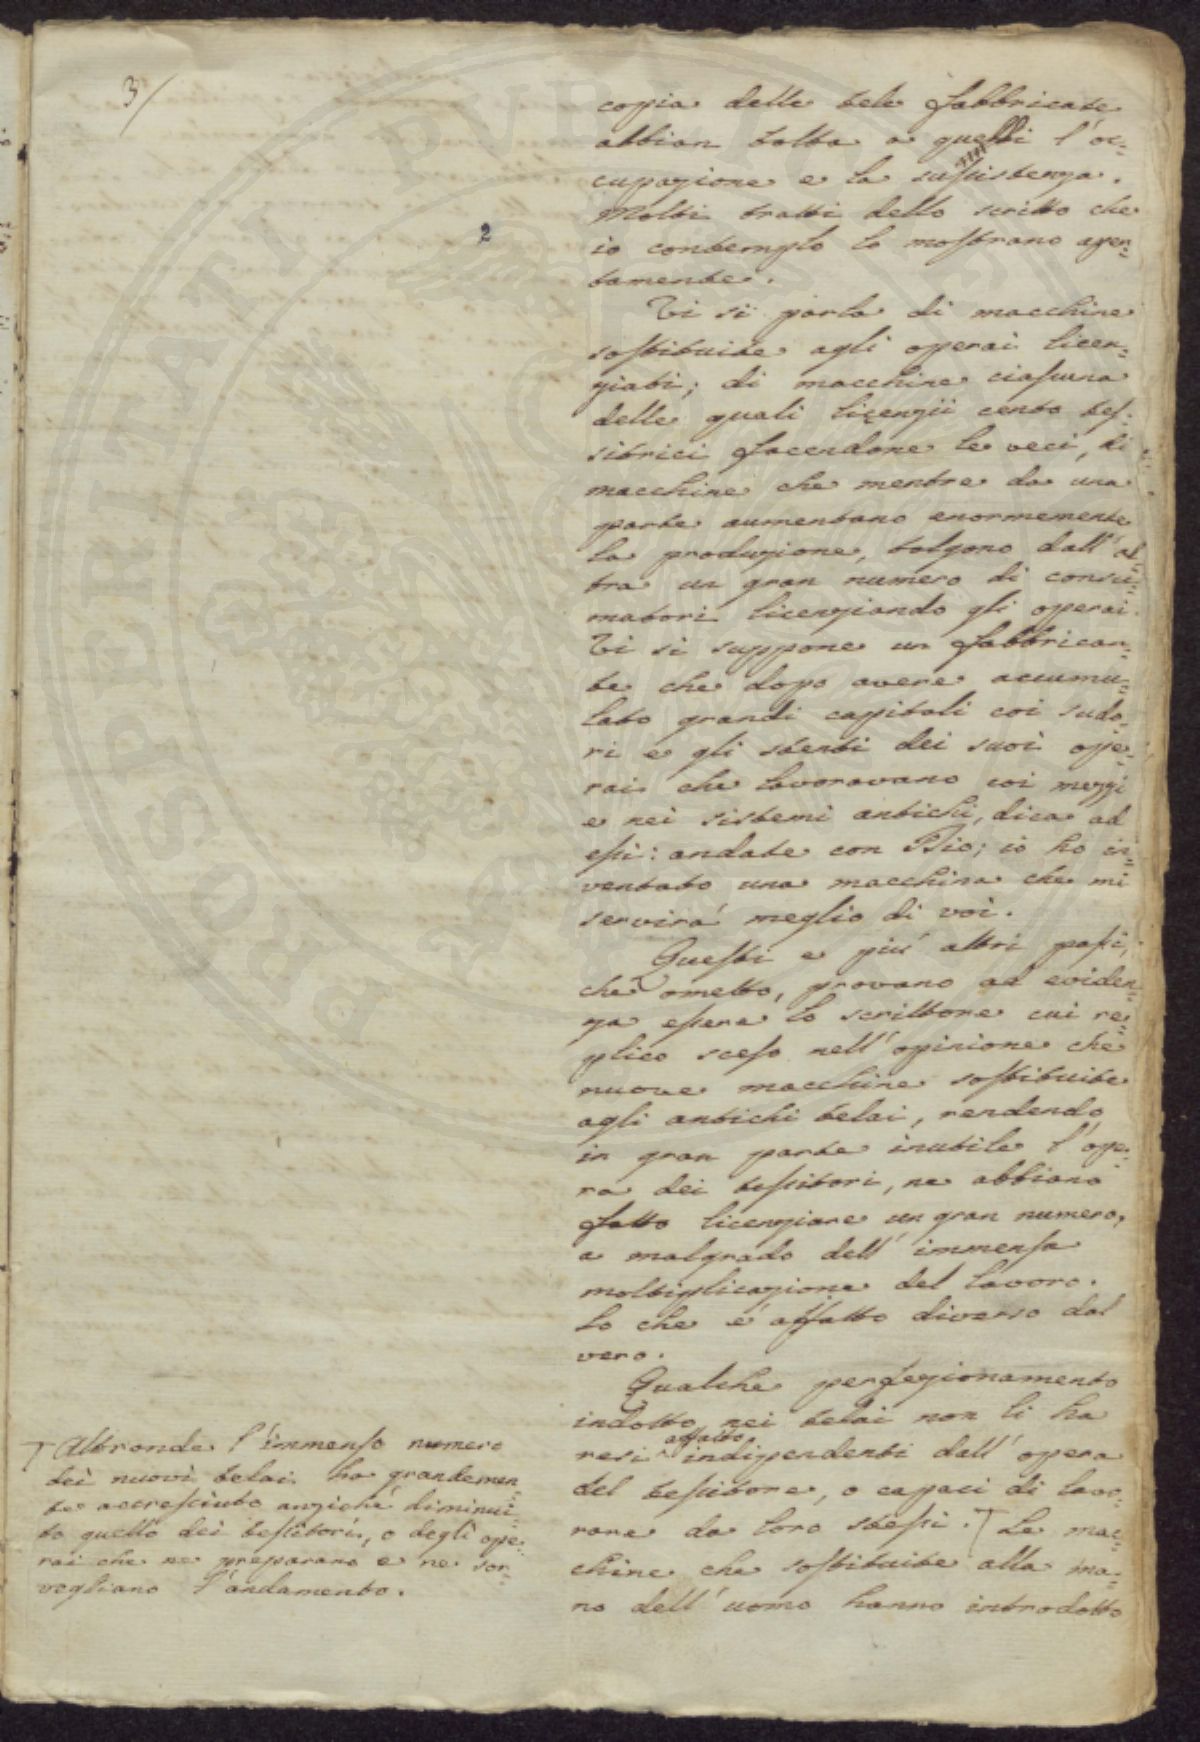 3/
2
copia delle tele fabbricate
abbian tolta a quelli l'oc=
cupazione e la sussistenza.
Molti tratti dello scritto che
io contemplo lo mostrano aper=
tamente.
Vi si parla di macchine
sostituite agli operai licen=
ziati; di macchine ciascuna
delle quali licenzii cento tes=
sitrici facendone le veci, di
macchine che mentre da una
parte aumentano enormemente
la produzione, tolgono dall'al=
tra un gran numero di consu=
matori licenziando gli operai.
Vi si suppone un fabbrican=
te che dopo avere accumu=
lato grandi capitali coi sudo=
ri e gli stenti dei suoi ope=
rai che lavoravano coi mezzi
e nei sistemi antichi, dica ad
essi: andate con Dio; io ho in=
ventato una macchina che mi
servirà meglio di voi.
Questi e più altri passi,
che ometto, provano ad eviden=
za essere lo scrittore cui re=
plico sceso nell'opinione che
nuove macchine sostituite
agli antichi telai, rendendo
in gran parte inutile l'ope=
ra dei tessitori, ne abbiano
fatto licenziare un gran numero,
a malgrado dell'immensa
moltiplicazione del lavoro.
Lo che è affatto diverso dal
vero.
Qualche perfezionamento
indotto nei telai non li ha
resi affatto indipendenti dall'opera
del tessitore, o capaci di lavo=
rare da loro stessi. T Le mac=
chine che sostituite alla ma=
no dell'uomo hanno introdotto
T Altronde l'immenso numero
dei nuovi telai ha grandemen=
te accresciuto anziché diminui=
to quello dei tessitori, o degli ope=
rai che ne preparano e ne sor=
vegliano l'andamento.